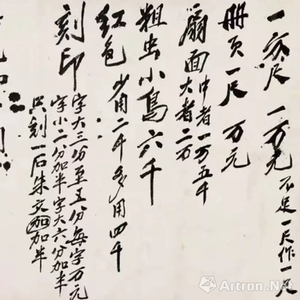 一方尺 一万元 不足一尺作一尺
册页一尺 万元
扇面 中者一万五千
大者二万
粗虫小鸟六千
红色 少用二千 多用四千
刻印 字大三分至五分每字万元
字小二分加半字大六分加半
只刻一石朱文加半
雅昌
Artron.Net